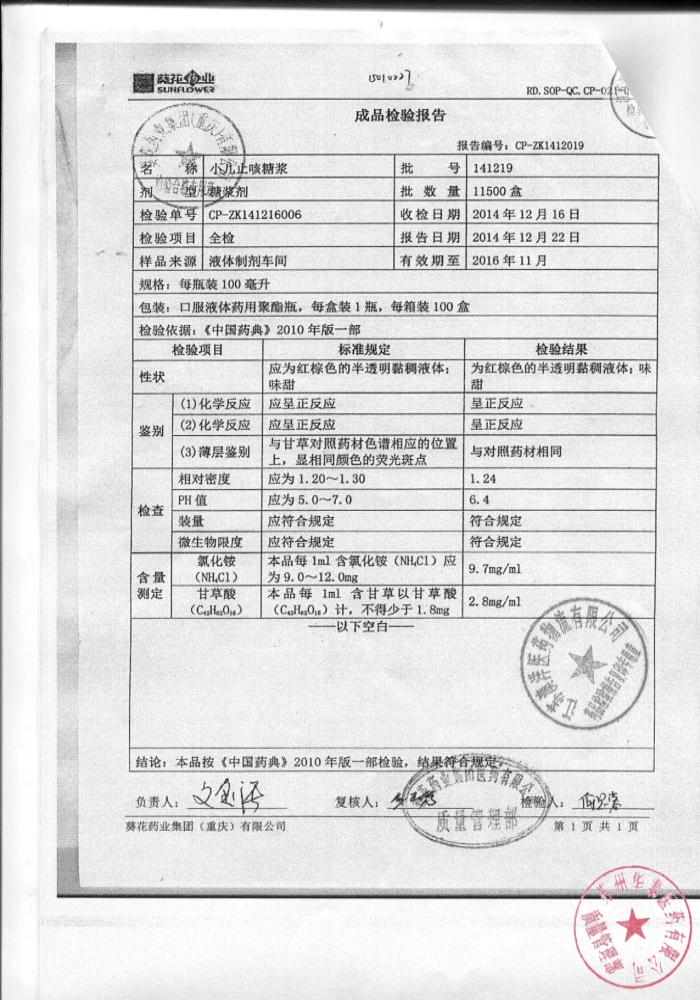 葵花药业
SUNFLOWER
RD. SOP-QC. CP-021-0
成品检验报告
报告编号：CP-ZK1412019
名 称 小儿止咳糖浆 批 号 141219
剂 型 糖浆剂 批 数 量 11500 盒
检验单号 CP-ZK141216006 收检日期 2014 年 12 月 16 日
检验项目 全检 报告日期 2014 年 12 月 22 日
样品来源 液体制剂车间 有效期至 2016 年 11 月
规格：每瓶装 100 毫升
包装：口服液体药用聚酯瓶，每盒装 1 瓶，每箱装 100 盒
检验依据：《中国药典》2010 年版一部
检验项目 标准规定 检验结果
性状 应为红棕色的半透明黏稠液体；味甜 为红棕色的半透明黏稠液体；味甜
鉴别 (1)化学反应 应呈正反应 呈正反应
(2)化学反应 应呈正反应 呈正反应
(3)薄层鉴别 与甘草对照药材色谱相应的位置上，显相同颜色的荧光斑点 与对照药材相同
检查 相对密度 应为 1.20～1.30 1.24
PH 值 应为 5.0～7.0 6.4
装量 应符合规定 符合规定
微生物限度 应符合规定 符合规定
含量测定 氯化铵（NH₄Cl） 本品每 1ml 含氯化铵（NH₄Cl）应为 9.0～12.0mg 9.7mg/ml
甘草酸（C₄₂H₆₂O₁₆） 本品每 1ml 含甘草以甘草酸（C₄₂H₆₂O₁₆）计，不得少于 1.8mg 2.8mg/ml
——以下空白——
结论：本品按《中国药典》2010 年版一部检验，结果符合规定。
负责人： 复核人： 检验人：
质量管理部
葵花药业集团（重庆）有限公司 第 1 页 共 1 页